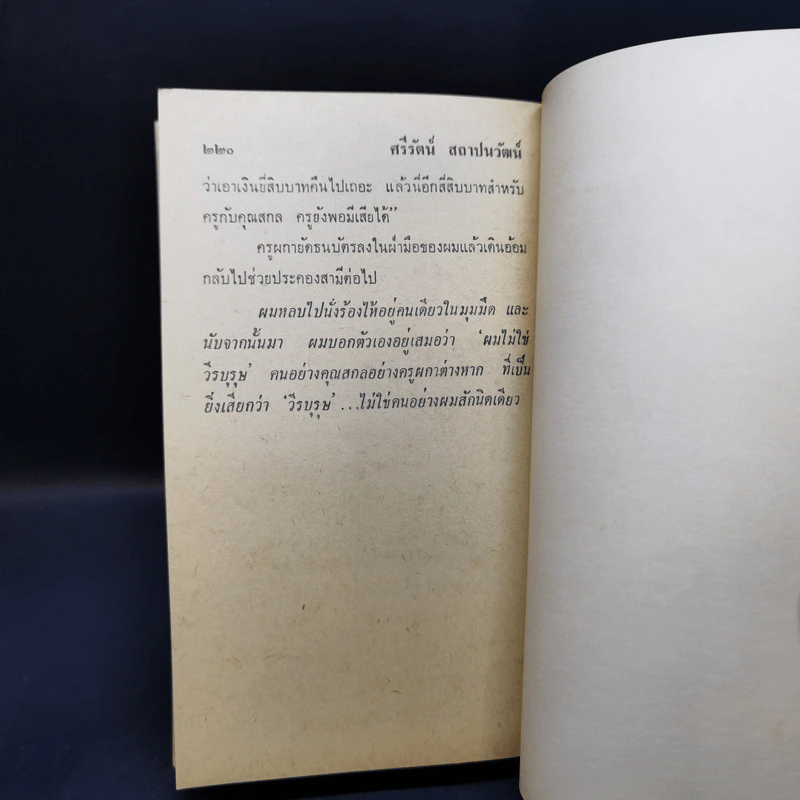 ๒๒๐ ศรีรัตน์ สถาปนวัฒน์
ว่าเอาเงินยี่สิบบาทคืนไปเถอะ แล้วนี่อีกสี่สิบบาทสำหรับ
ครูกับคุณสกล ครูยังพอมีเสียได้”
ครูผกายัดธนบัตรลงในฝ่ามือของผมแล้วเดินอ้อม
กลับไปช่วยประคองสามีต่อไป
ผมหลบไปนั่งร้องไห้อยู่คนเดียวในมุมมืด และ
นับจากนั้นมา ผมบอกตัวเองอยู่เสมอว่า ‘ผมไม่ใช่
วีรบุรุษ’ คนอย่างคุณสกลอย่างครูผกาต่างหาก ที่เป็น
ยิ่งเสียกว่า ‘วีรบุรุษ’ ...ไม่ใช่คนอย่างผมสักนิดเดียว